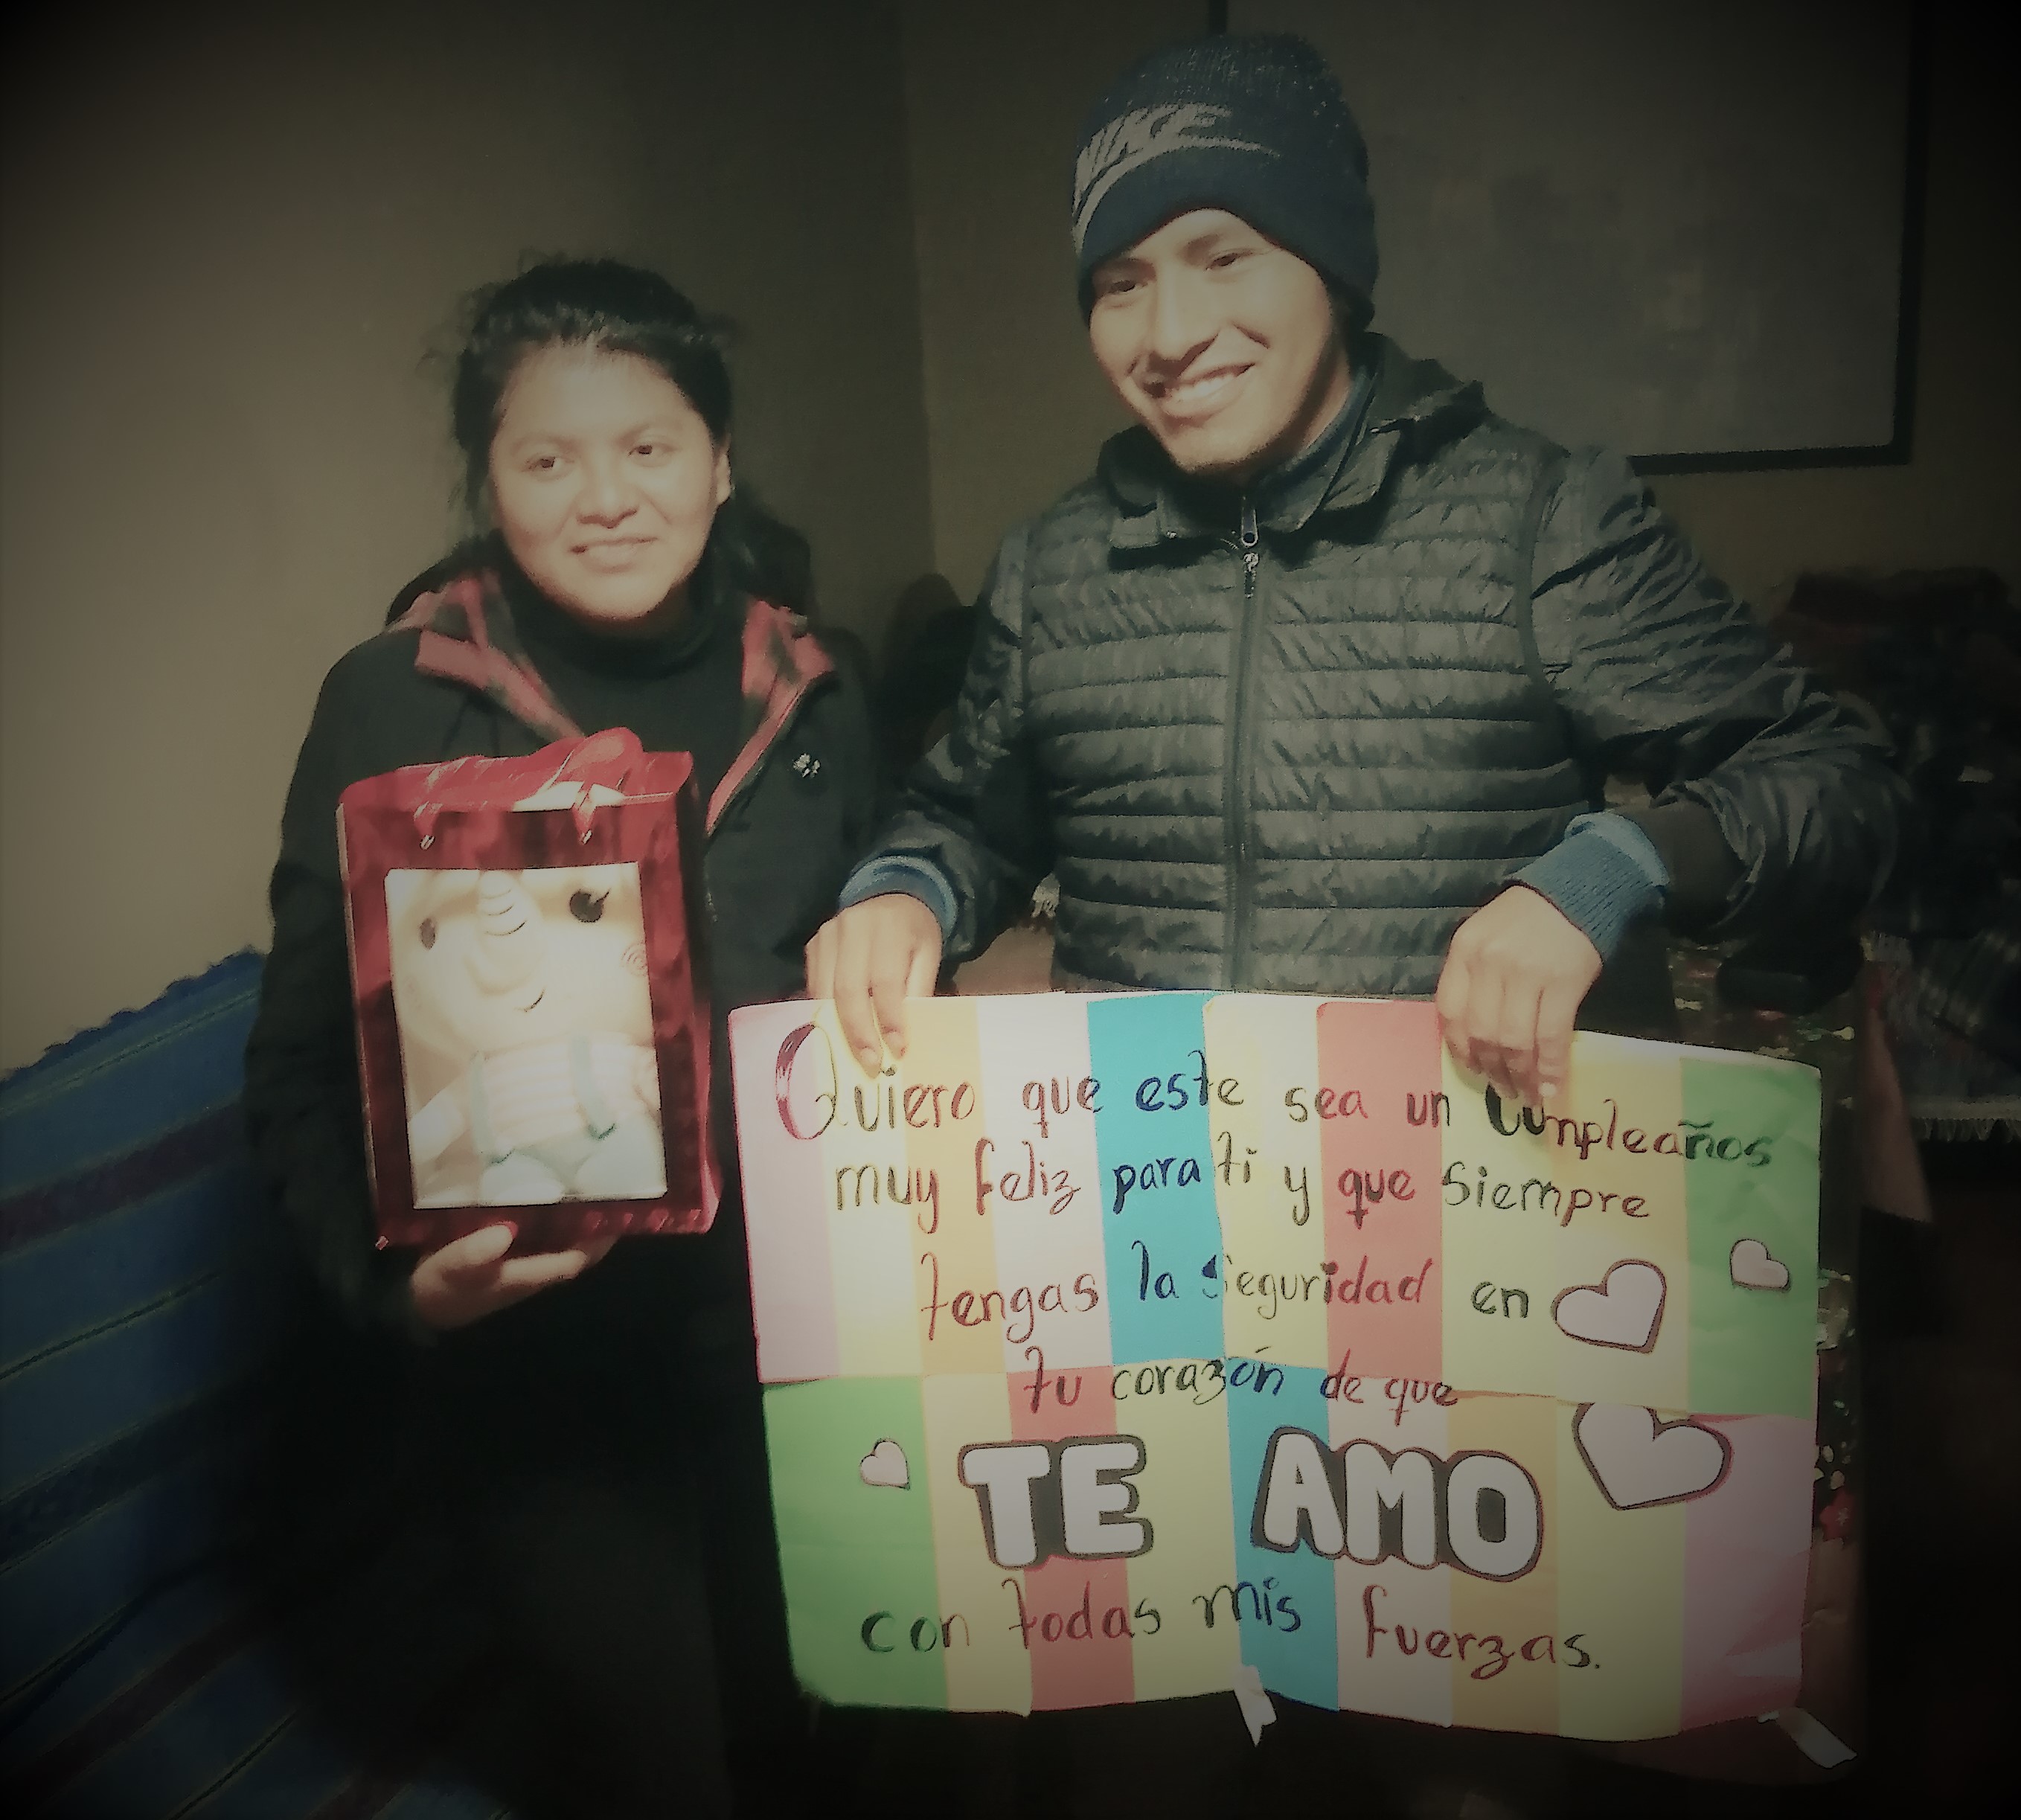 Quiero que este sea un Cumpleaños
muy feliz para ti y que Siempre
tengas la Seguridad en
tu corazón de que
TE AMO
con todas mis fuerzas.